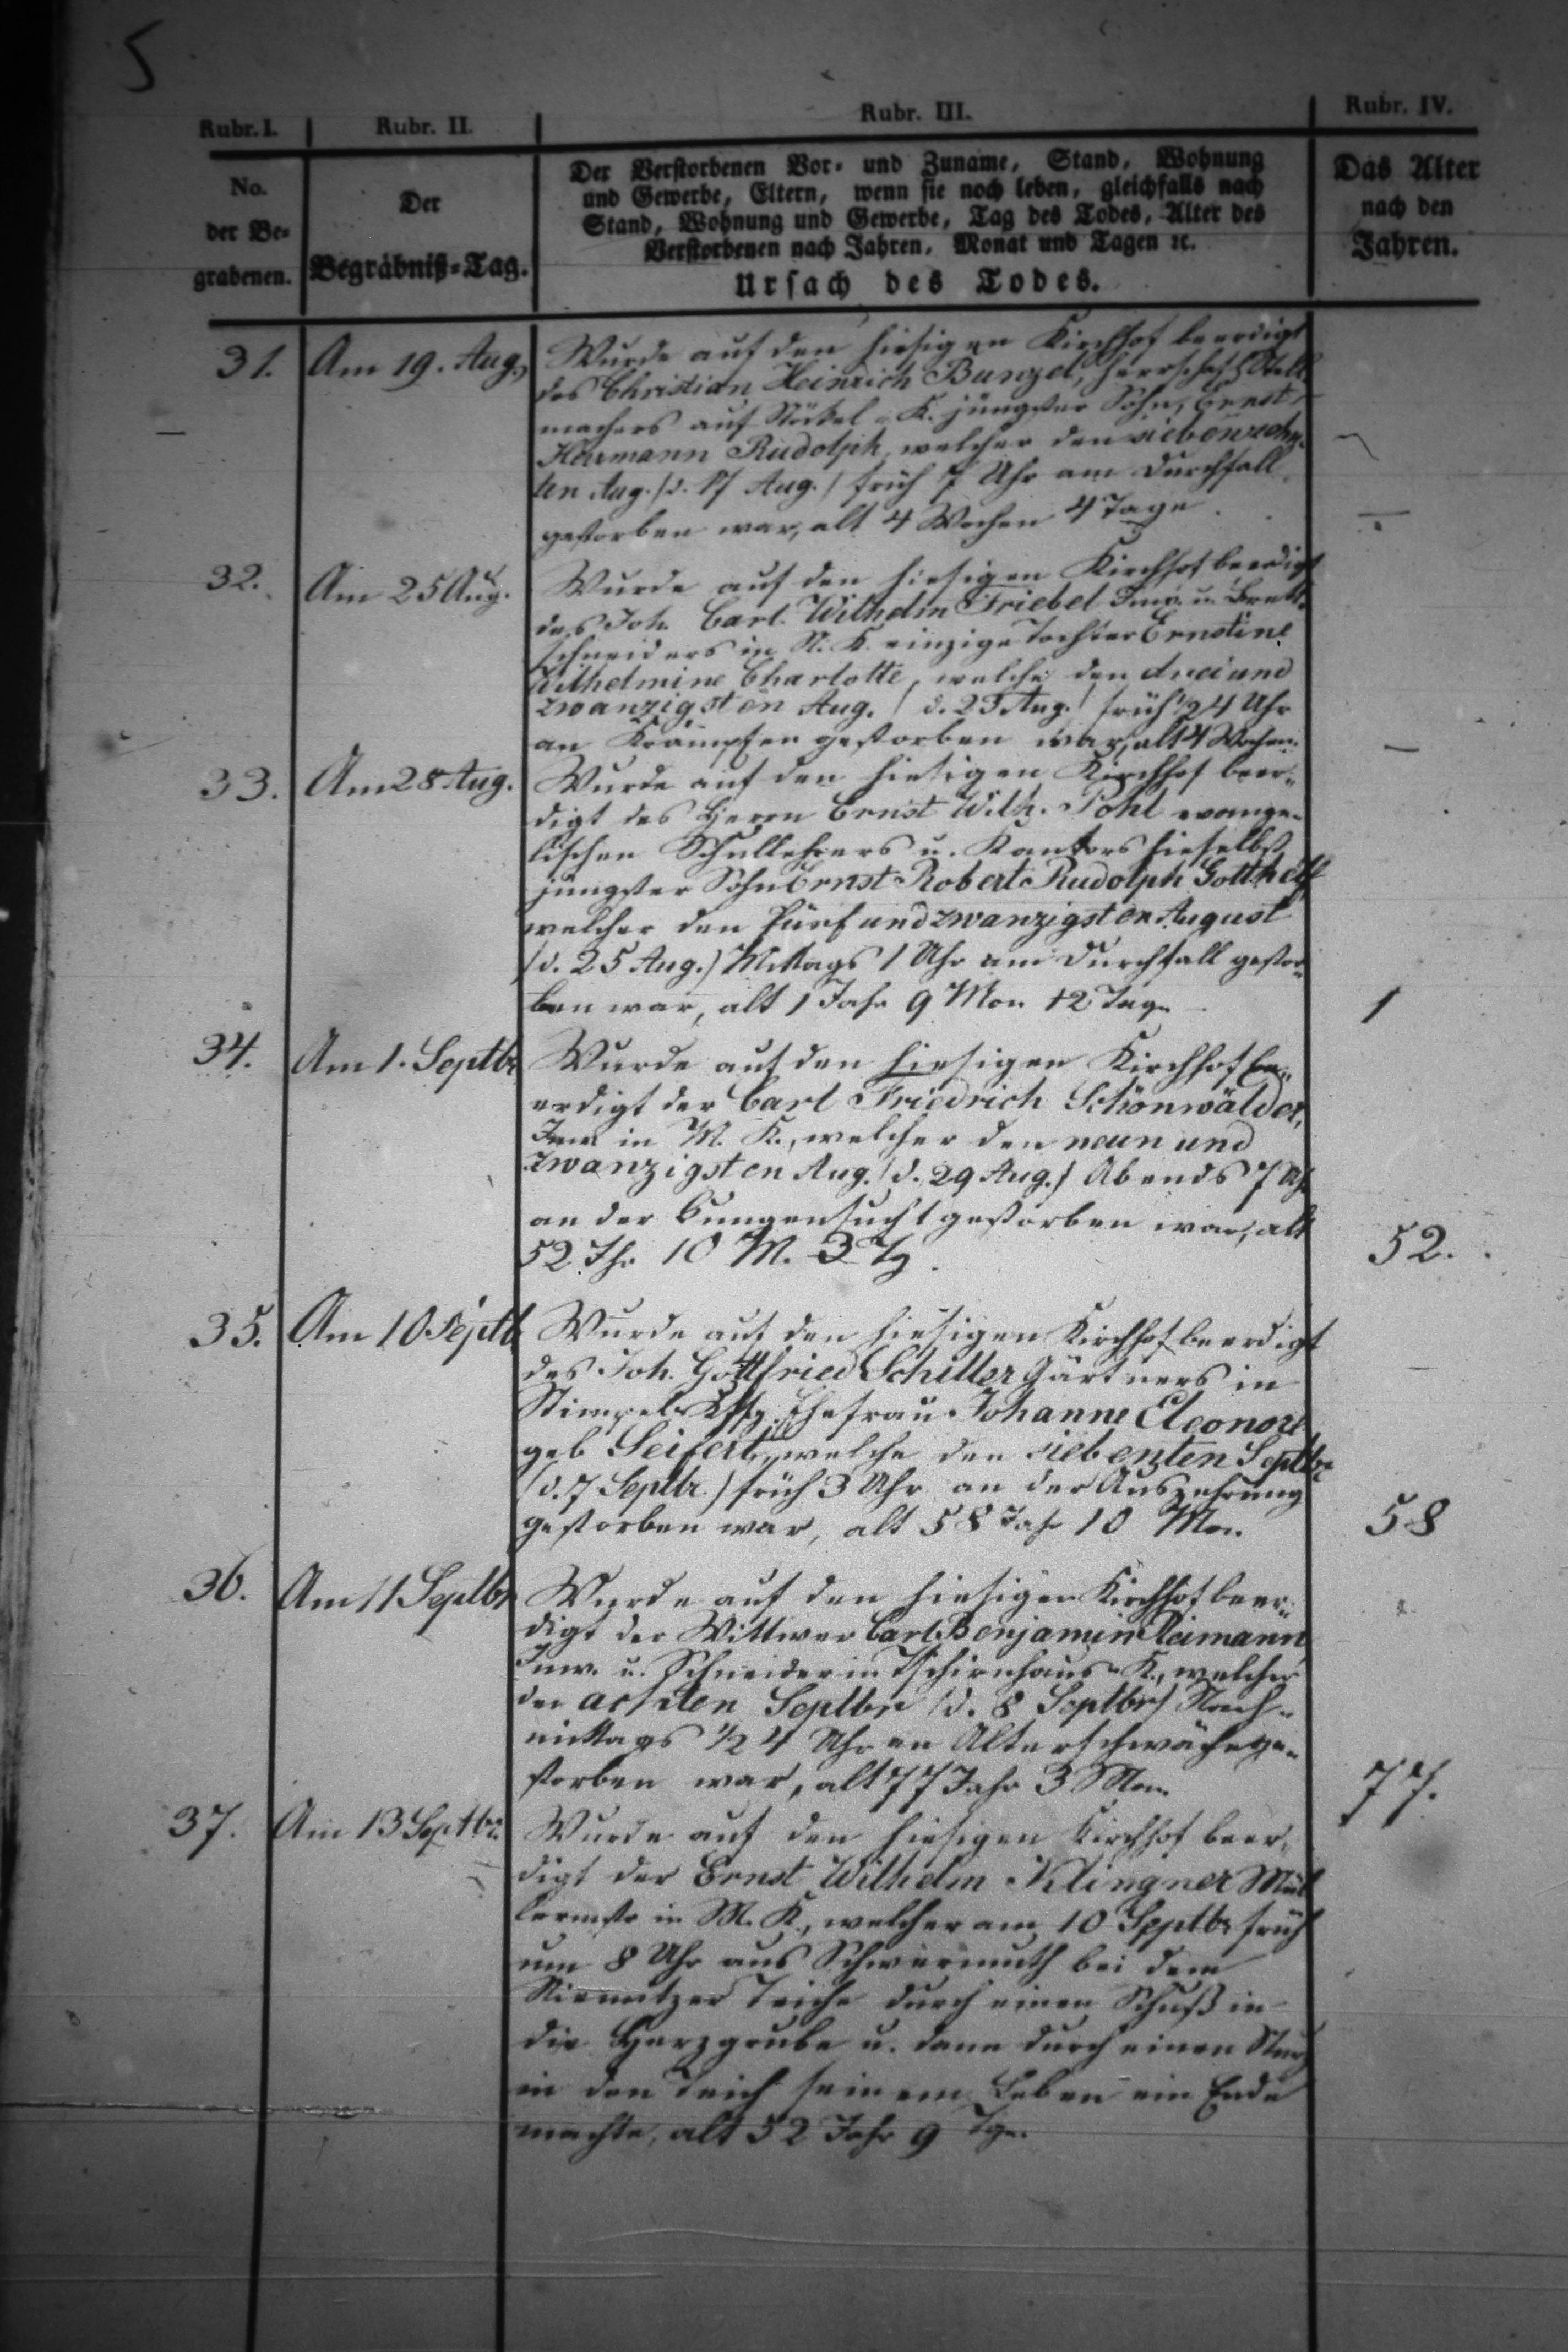 5
Rubr. I. Rubr. II. Rubr. III. Rubr. IV.
No. der Be-grabenen.
Der Begräbniß-Tag.
Der Verstorbenen Vor- und Zuname, Stand, Wohnung
und Gewerbe, Eltern, wenn sie noch leben, gleichfalls nach
Stand, Wohnung und Gewerbe, Tag des Todes, Alter des
Verstorbenen nach Jahren, Monat und Tagen ꝛc.
Ursach des Todes.
Das Alter nach den Jahren.
31. Am 19. Aug. Wurde auf den hiesigen Kirchhof beerdigt
des Christian Heinrich Bunzel, herrschaftl. Stell-
machers auf Stöckel-K. jüngster Sohn, Ernst
Hermann Rudolph, welcher den siebenzehn-
ten Aug. /d. 17 Aug./ früh 7 Uhr am Durchfall
gestorben war, alt 4 Wochen 4 Tage.
32. Am 25 Aug. Wurde auf den hiesigen Kirchhof beerdigt
des Joh. Carl Wilhelm Friebel Inw. u. Brett-
schneiders in N. K. einzige Tochter Ernstine
Wilhelmine Charlotte, welche den drei und
zwanzigsten Aug. /d. 23 Aug./ früh 1/2 4 Uhr
an Krämpfen gestorben war, alt 4 Wochen.
33. Am 28 Aug. Wurde auf den hiesigen Kirchhof beer-
digt des Herrn Ernst Wilh. Pohl evange-
lischen Schullehrers u. Kantors hieselbst
jüngster Sohn Ernst Robert Rudolph Gotthelf
welcher den fünf und zwanzigsten August
/d. 25 Aug./ Mittags 1 Uhr am Durchfall gestor-
ben war, alt 1 Jahr 9 Mon. 12 Tage 1
34. Am 1. Septbr Wurde auf den hiesigen Kirchhof be-
erdigt der Carl Friedrich Schönwälder,
Inw. in M. K., welcher den neun und
zwanzigsten Aug. /d. 29 Aug./ Abends 7 Uhr
an der Lungensucht gestorben war, alt
52 Jhr. 10 M. 3 Tg. 52.
35. Am 10 Septb Wurde auf den hiesigen Kirchhof beerdigt
des Joh. Gottfried Schiller Gärtners in
Stimpel Ehefrau Johanne Eleonore
geb Seifert, welche den siebenten Septbr
(d. 7 Septbr.) früh 3 Uhr an der Auszehrung
gestorben war, alt 58 Jahr 10 Mon. 58
36. Am 11 Septbr Wurde auf den hiesigen Kirchhof beer-
digt der Wittwer Carl Benjamin Reimann,
Inw. u. Schneider in Tschirnhaus-K., welcher
den achten Septbr /d. 8 Septbr/ Nach-
mittags 1/2 4 Uhr an Altersschwäche ge-
storben war, alt 77 Jahr 3 Mon. 77.
37. Am 13 Septbr. Wurde auf den hiesigen Kirchhof beer-
digt der Ernst Wilhelm Klingner Mül-
lermstr in M. K., welcher am 10 Septbr früh
um 8 Uhr aus Schwermuth bei dem
Teiche durch einen Schuß in
die Herzgrube u. dann durch einen Sturz
in den Teich seinem Leben ein Ende
machte, alt 52 Jahr 9 Tge.